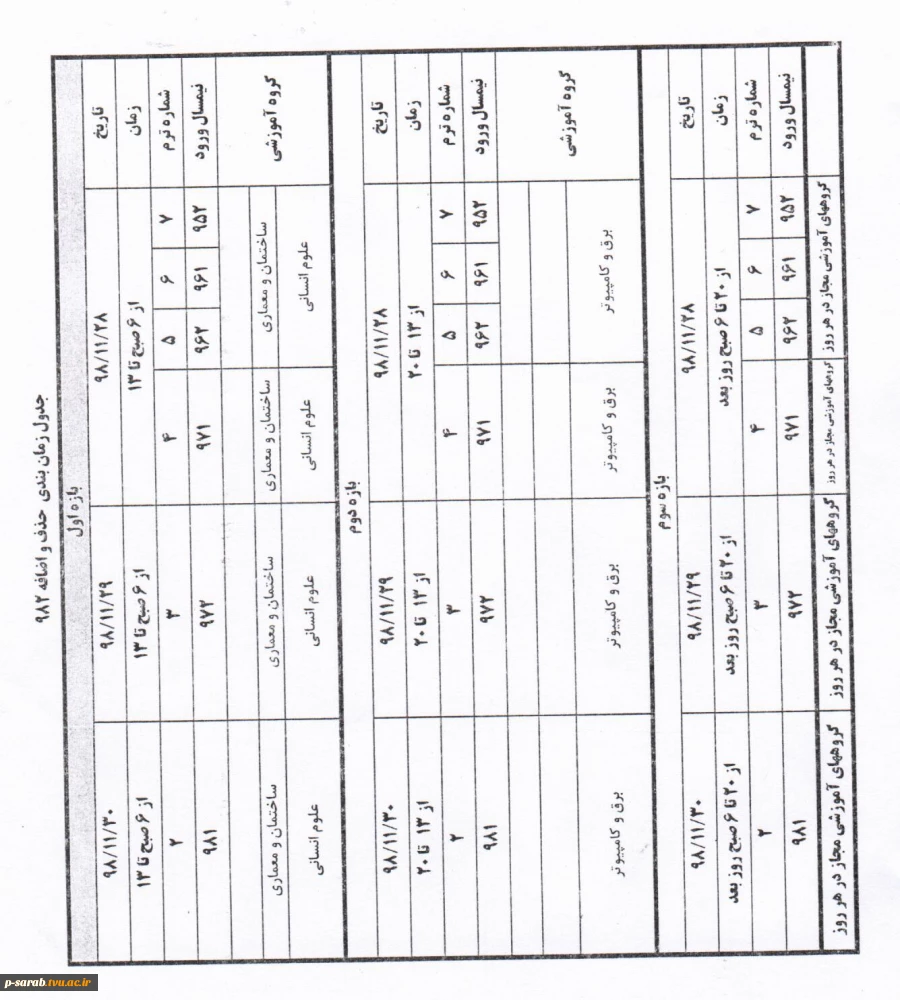 جدول زمان بندی حذف و اضافه ۹۸۲
بازه اول
تاریخ ۹۸/۱۱/۲۸ ۹۸/۱۱/۲۹ ۹۸/۱۱/۳۰
زمان از ۶ صبح تا ۱۳ از ۶ صبح تا ۱۳ از ۶ صبح تا ۱۳
شماره ترم ۷ ۶ ۵ ۴ ۳ ۲
نیمسال ورود ۹۵۲ ۹۶۱ ۹۶۲ ۹۷۱ ۹۷۲ ۹۸۱
گروه آموزشی
ساختمان و معماری ساختمان و معماری ساختمان و معماری ساختمان و معماری
علوم انسانی علوم انسانی علوم انسانی علوم انسانی
بازه دوم
تاریخ ۹۸/۱۱/۲۸ ۹۸/۱۱/۲۹ ۹۸/۱۱/۳۰
زمان از ۱۳ تا ۲۰ از ۱۳ تا ۲۰ از ۱۳ تا ۲۰
شماره ترم ۷ ۶ ۵ ۴ ۳ ۲
نیمسال ورود ۹۵۲ ۹۶۱ ۹۶۲ ۹۷۱ ۹۷۲ ۹۸۱
گروه آموزشی
برق و کامپیوتر برق و کامپیوتر برق و کامپیوتر برق و کامپیوتر
بازه سوم
تاریخ ۹۸/۱۱/۲۸ ۹۸/۱۱/۲۹ ۹۸/۱۱/۳۰
زمان از ۲۰ تا ۶ صبح روز بعد از ۲۰ تا ۶ صبح روز بعد از ۲۰ تا ۶ صبح روز بعد
شماره ترم ۷ ۶ ۵ ۴ ۳ ۲
نیمسال ورود ۹۵۲ ۹۶۱ ۹۶۲ ۹۷۱ ۹۷۲ ۹۸۱
گروههای آموزشی مجاز در هر روز گروههای آموزشی مجاز در هر روز گروههای آموزشی مجاز در هر روز گروههای آموزشی مجاز در هر روز
p-sarab.tvu.ac.ir